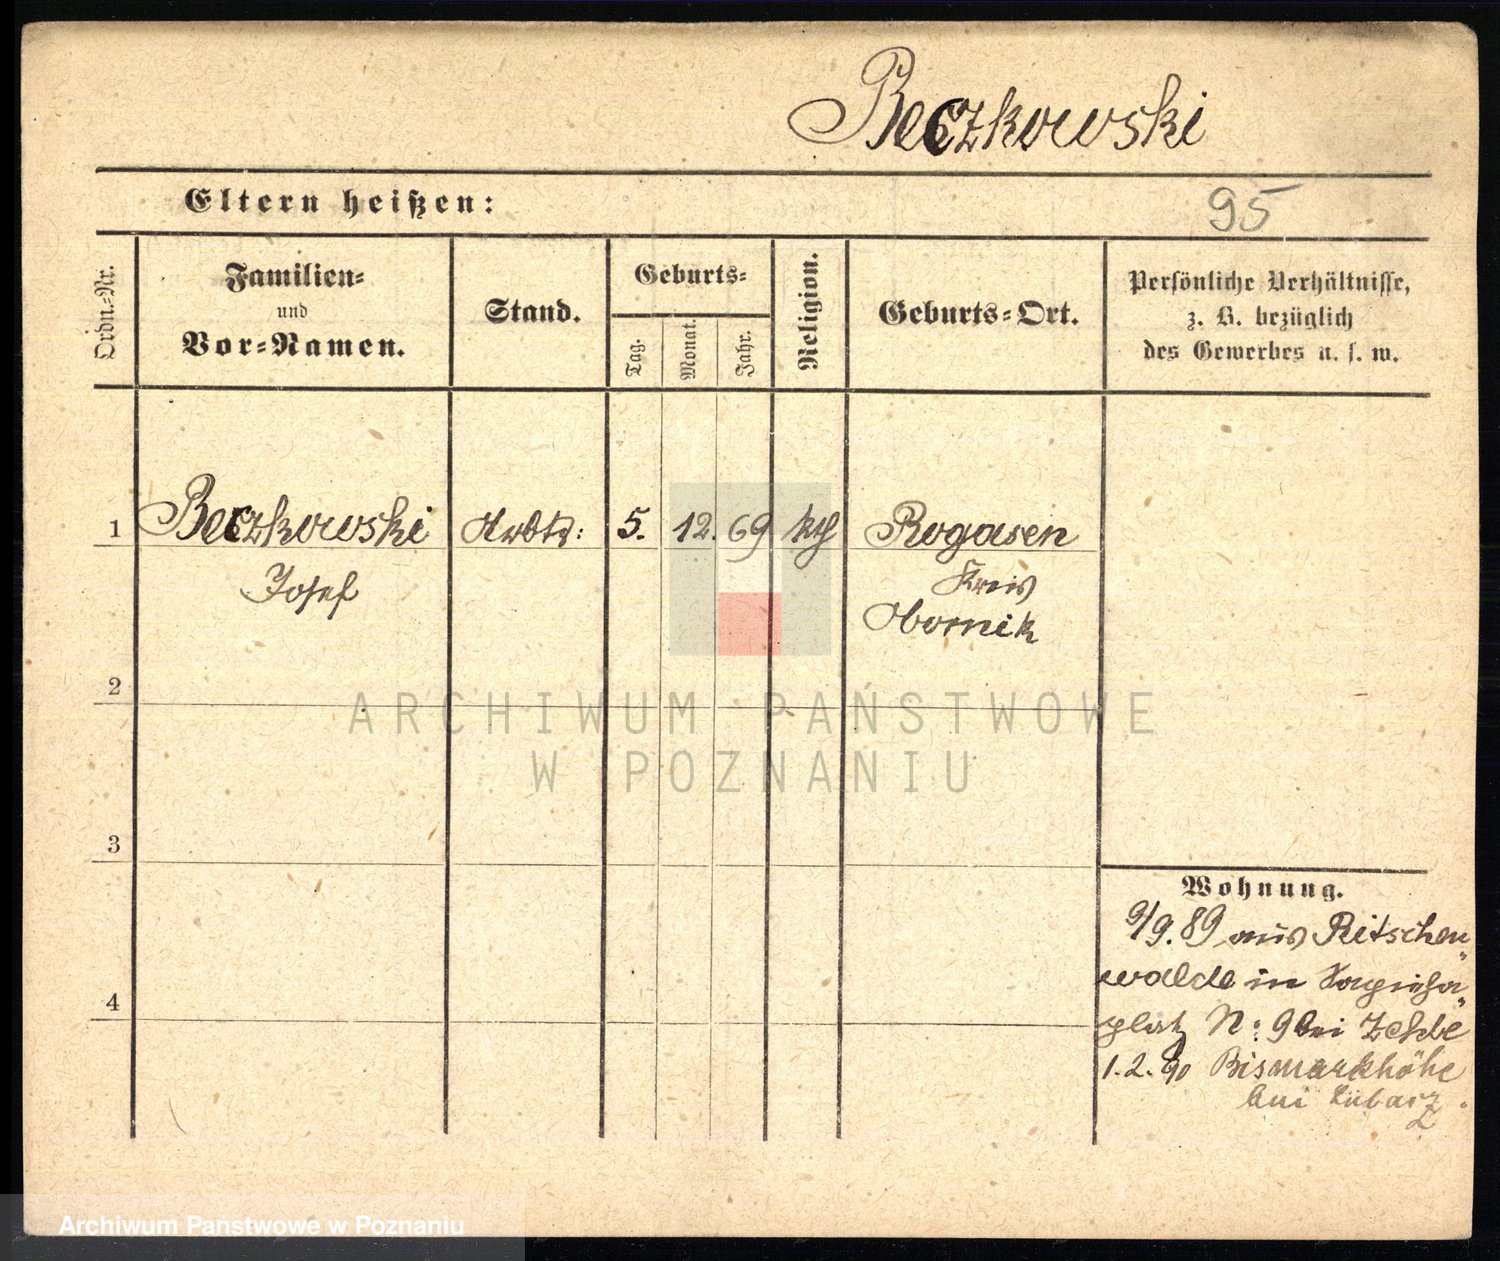 Beczkowski
Eltern heißen:
95
Ordn.-Nr.
Familien-
und
Vor-Namen.
Stand.
Geburts-
Tag.
Monat.
Jahr.
Religion.
Geburts-Ort.
Persönliche Verhältnisse,
z. B. bezüglich
des Gewerbes u. s. w.
1 Beczkowski 5. 12. 69 kth Rogasen
Josef Kreis
Obornik
2
ARCHIWUM PAŃSTWOWE
W POZNANIU
3
4
Wohnung.
9/9. 89 aus Ritschen„
walde in Sapieha„
platz No: 9 bei
1.2.90 Bismarkhöhe
bei Lubarz.
Archiwum Państwowe w Poznaniu